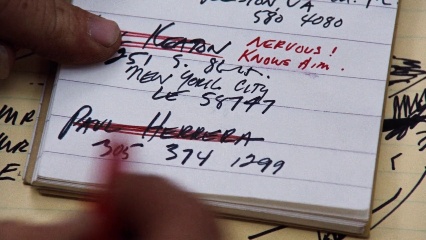 580 4080
KEATON NERVOUS!
KNOWS AIM.
251 S. 86ST.
NEW YORK CITY
LE 58747
PAUL HERRERA
305 374 1299